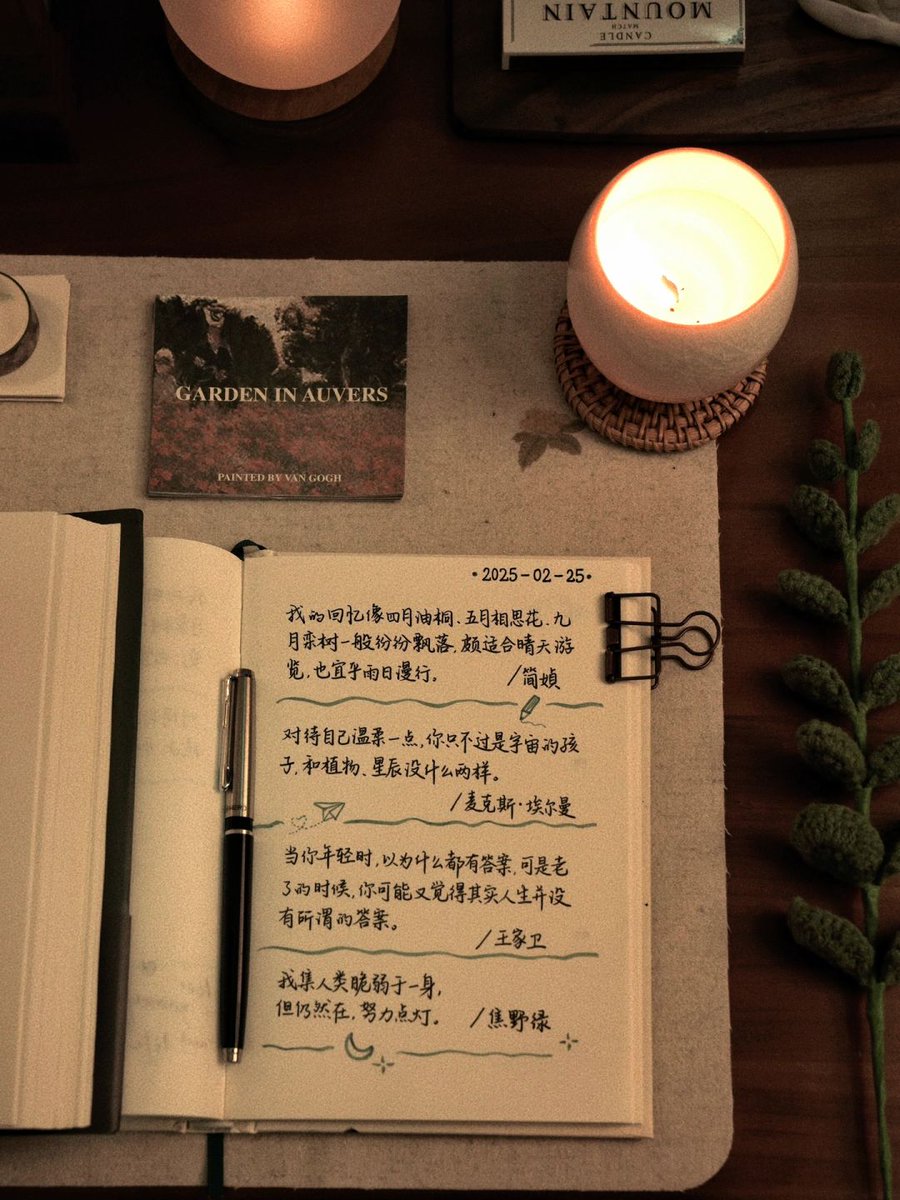 CANDLE
MATCH
MOUNTAIN
GARDEN IN AUVERS
PAINTED BY VAN GOGH
·2025-02-25·
我的回忆像四月油桐、五月相思花、九
月栾树一般纷纷飘落,颇适合晴天游
览,也宜乎雨日漫行。
/简媜
对待自己温柔一点,你只不过是宇宙的孩
子,和植物、星辰没什么两样。
/麦克斯·埃尔曼
当你年轻时,以为什么都有答案,可是老
了的时候,你可能又觉得其实人生并没
有所谓的答案。
/王家卫
我集人类脆弱于一身,
但仍然在,努力点灯。 /焦野绿